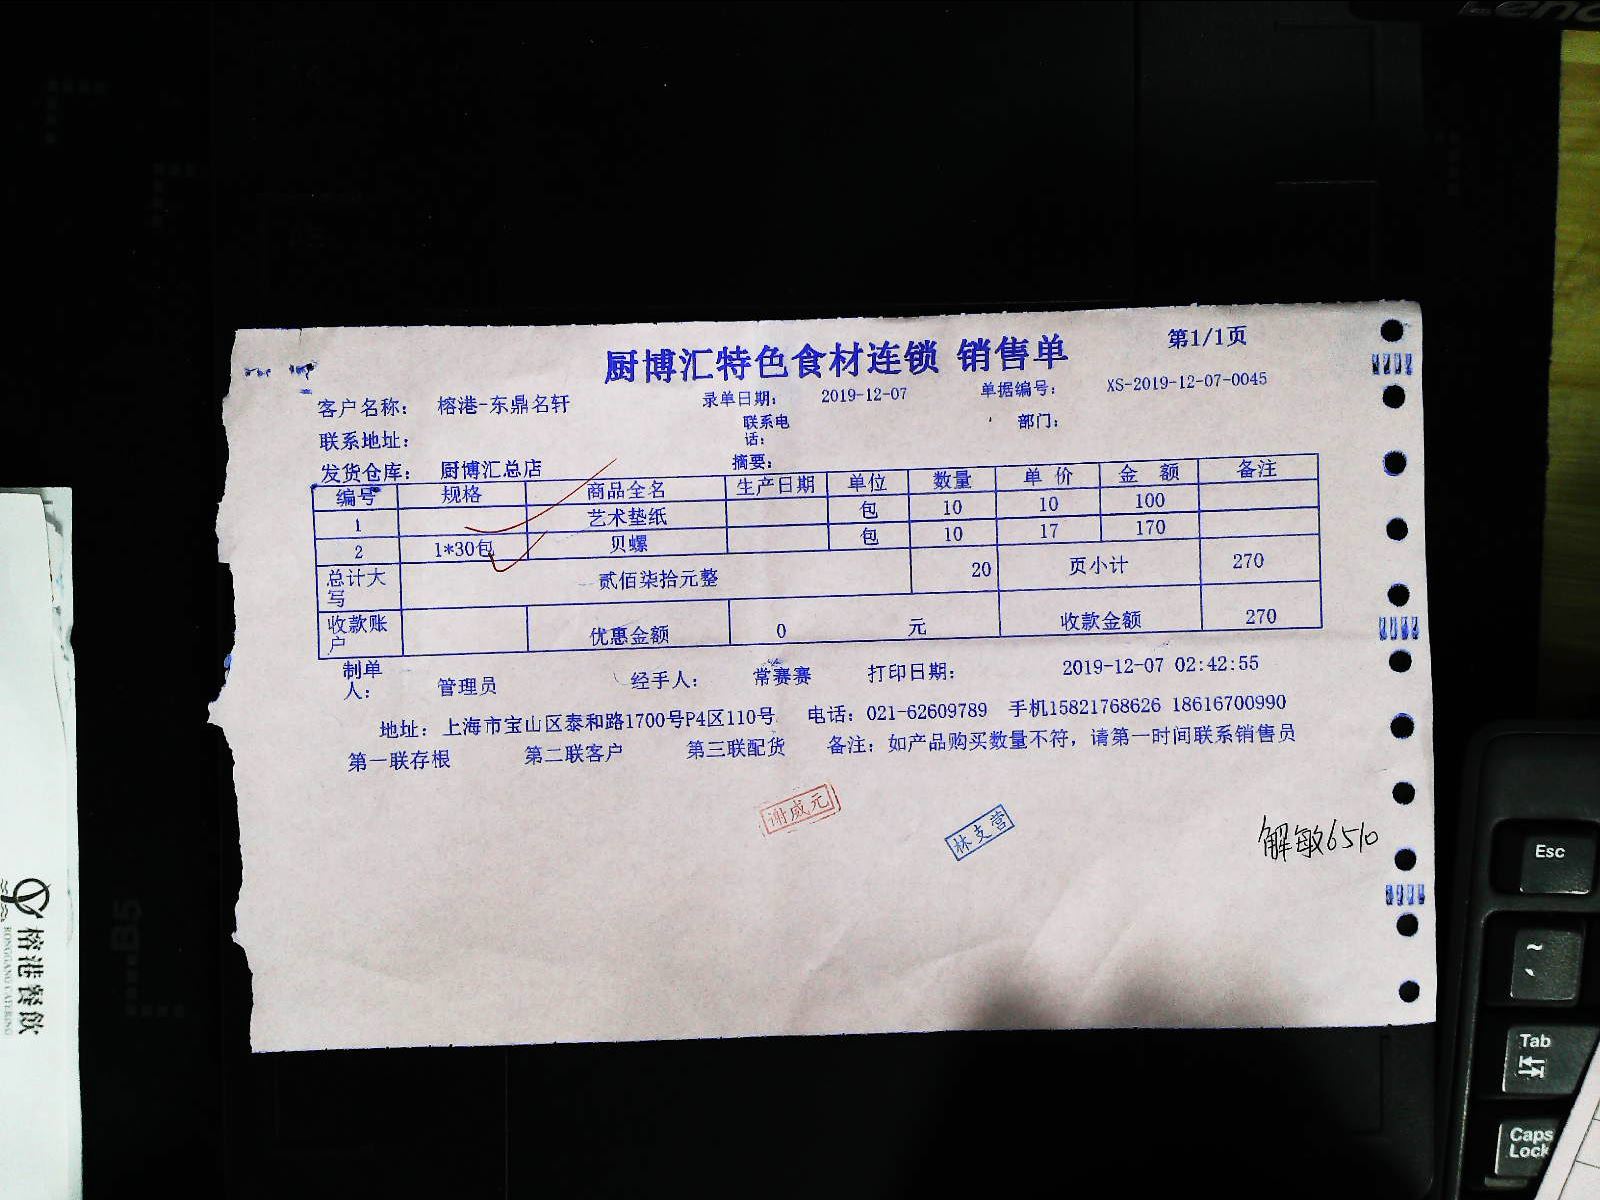 厨博汇特色食材连锁 销售单 第1/1页
客户名称： 榕港-东鼎名轩 录单日期： 2019-12-07 单据编号： XS-2019-12-07-0045
联系地址： 联系电话： 部门：
发货仓库： 厨博汇总店 摘要：
编号 规格 商品全名 生产日期 单位 数量 单价 金额 备注
1 艺术垫纸 包 10 10 100
2 1*30包 贝螺 包 10 17 170
总计大写 贰佰柒拾元整 20 页小计 270
收款账户 优惠金额 0 元 收款金额 270
制单人： 管理员 经手人： 常赛赛 打印日期： 2019-12-07 02:42:55
地址：上海市宝山区泰和路1700号P4区110号 电话：021-62609789 手机15821768626 18616700990
第一联存根 第二联客户 第三联配货 备注：如产品购买数量不符，请第一时间联系销售员
谢成元
林支营
解敏6510
榕港餐飲
RONGGANG CATERING
B5
Esc
~
Tab
Caps
Lock